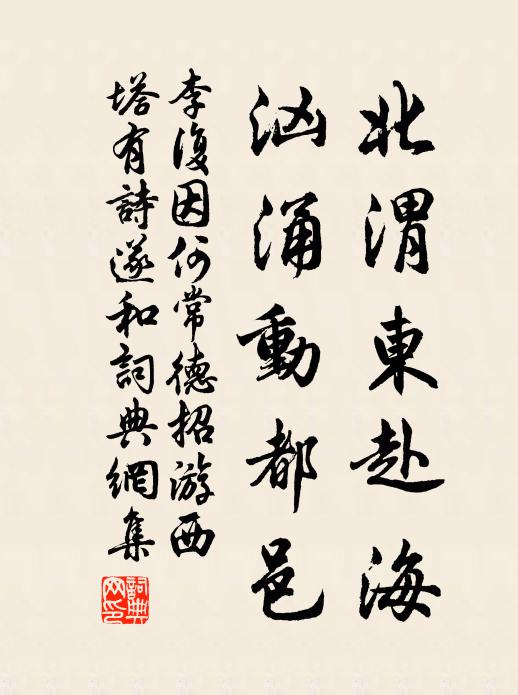 北渭東赴海
汹涌動都邑
李復因何常德招游西
塔有詩遂和詞典網集
詞典
网印